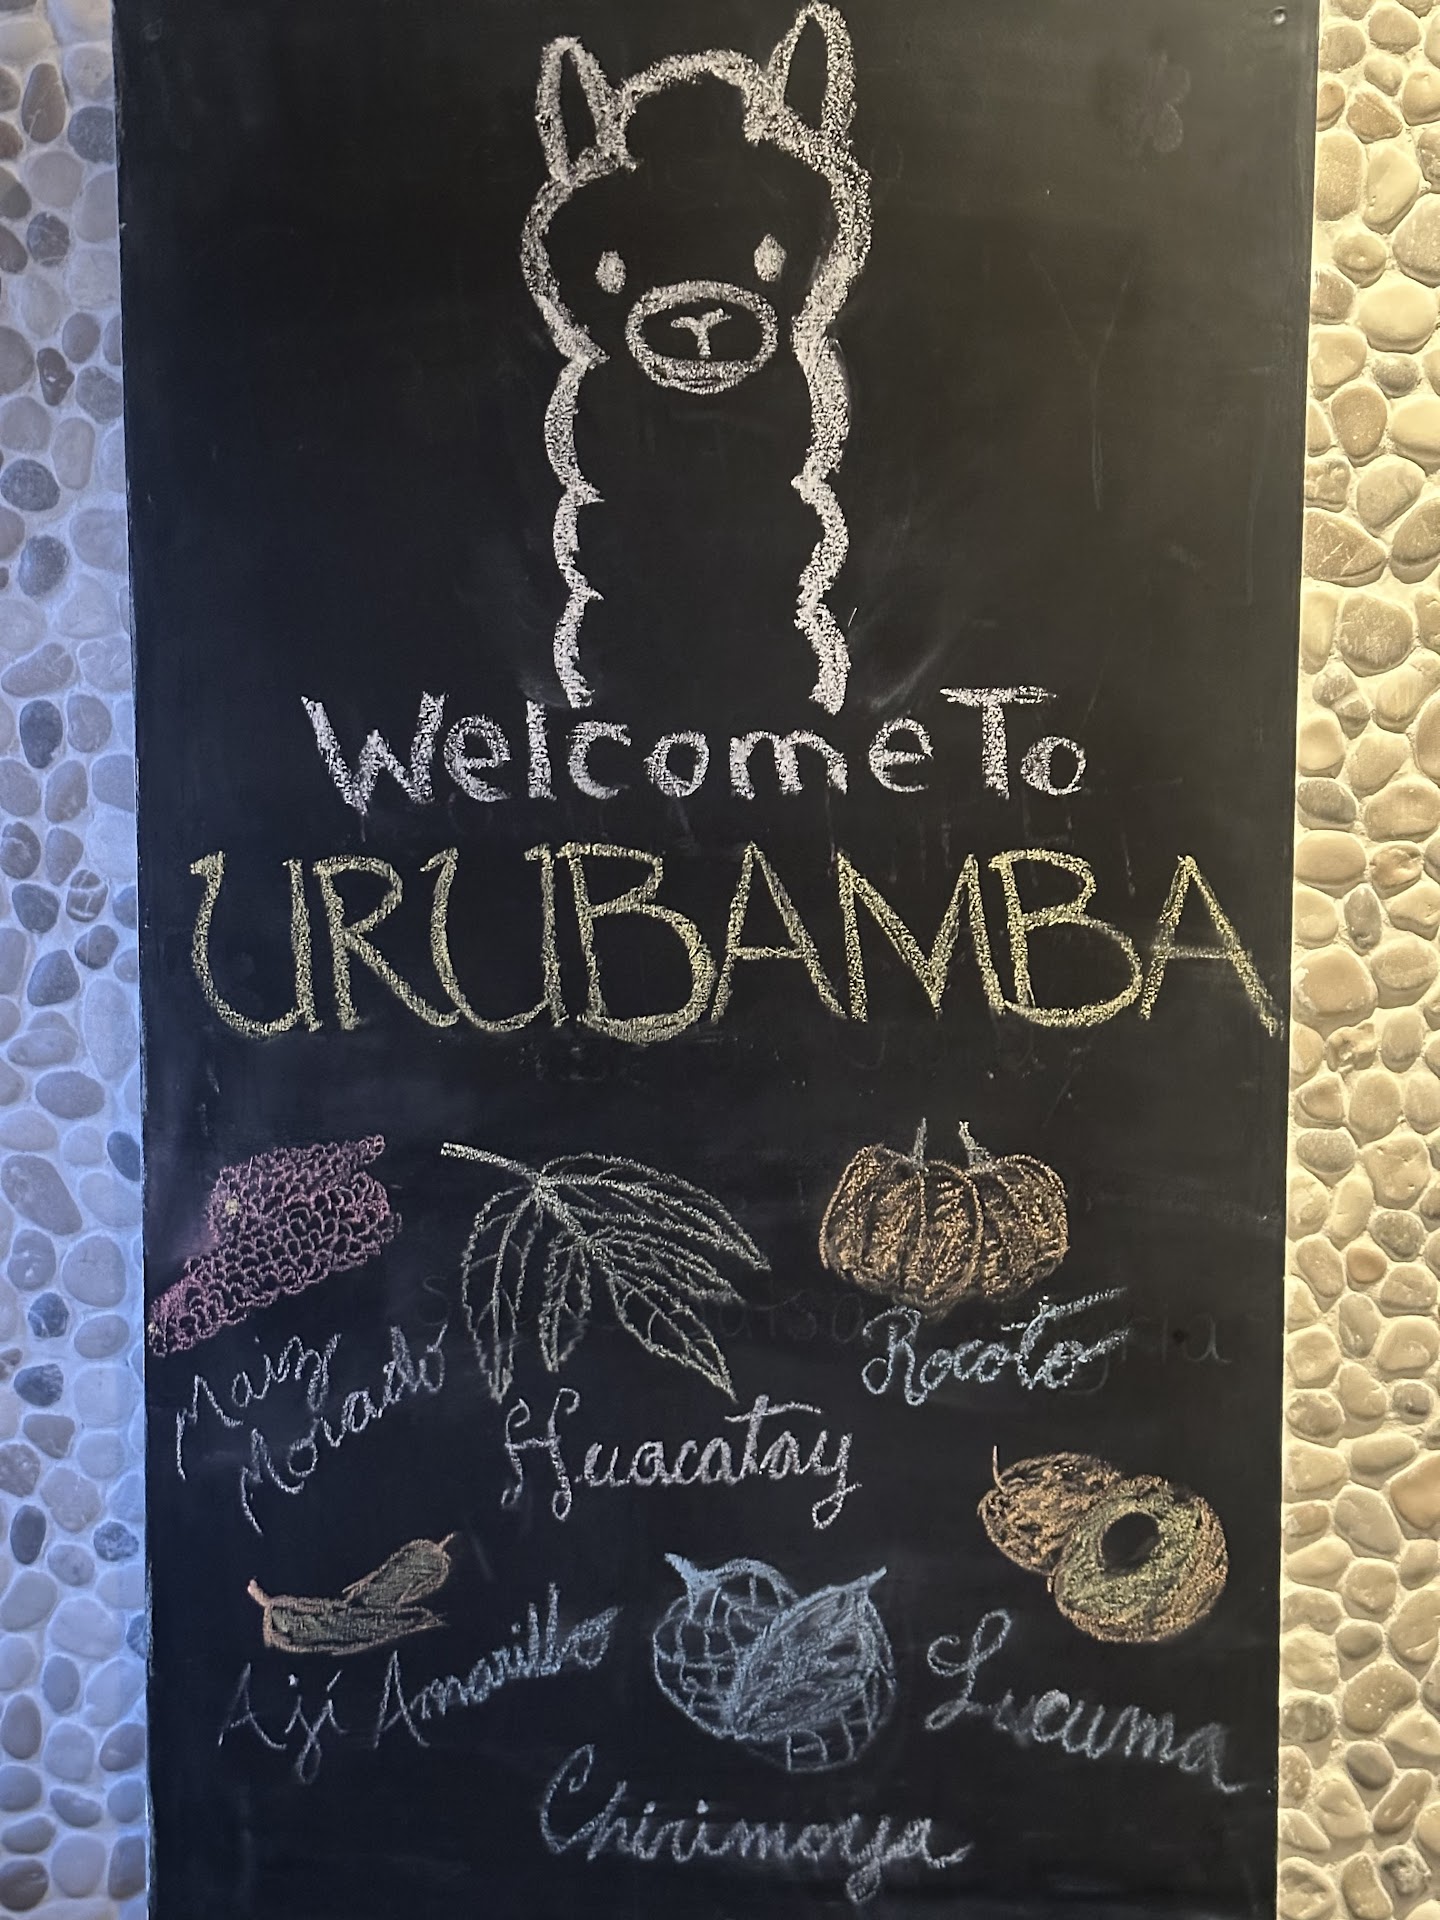 Welcome To
URUBAMBA
Maiz
Morado
Huacatay
Rocoto
Ají Amarillo
Chirimoya
Lucuma